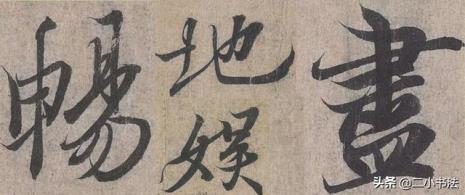 暢
地
娱
盡
头条 @二小书法